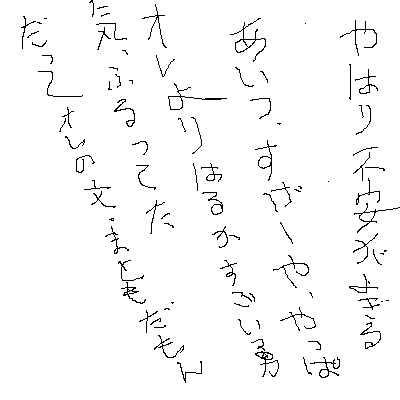 やはり不安がよぎる
あいつ、すげーや、やっぱ
オレよりはるかすごい勇
気、ふるってた
だってオレの文、まともだもん